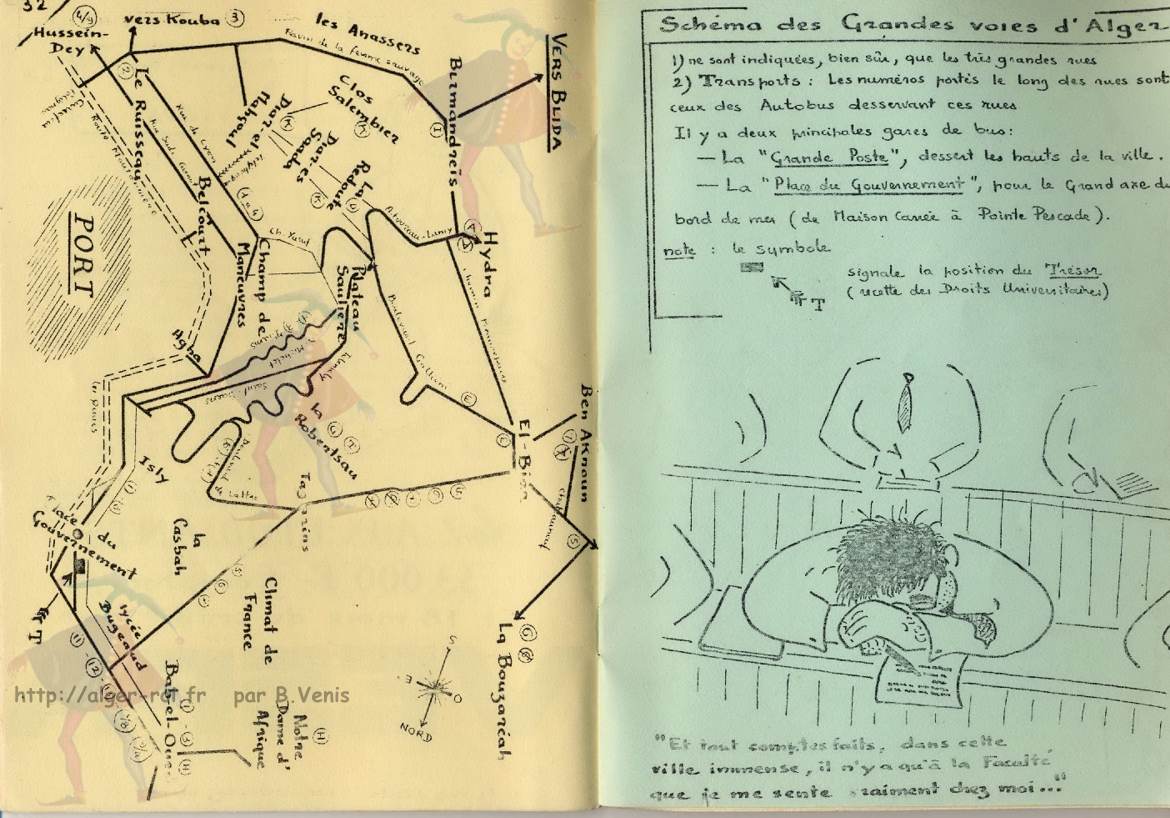 32
4/9
vers Kouba 3
Hussein-
Dey
les Anassers
Ravin de la femme sauvage
VERS BLIDA
Le Ruisseau
Birmandreïs
Clos
Salembier
Diar-el
Mahçoul
Diar-es
Saada
La
Redoute
Rue de Lyon
Belcourt
PORT
Champ de
Manœuvres
Hydra
Plateau
Saulière
Boulevard Gallieni
Agha
Michelet
Saint-Saëns
la
Robertsau
G T
El-Biar
Ben Aknoun
Isly
Tagarins
Place
du
Gouvernement
la
Casbah
Climat de
France
lycée
Bugeaud
T
Bab-el-Oue
Notre
Dame d'
Afrique
H
La Bouzaréah
S
E
O
NORD
http://alger-roi.fr par B.Venis
Schéma des Grandes voies d'Alger
1) ne sont indiquées, bien sûr, que les très grandes rues
2) Transports : Les numéros portés le long des rues sont
ceux des Autobus desservant ces rues
Il y a deux principales gares de bus :
— La "Grande Poste", dessert les hauts de la ville.
— La "Place du Gouvernement", pour le Grand axe du
bord de mer (de Maison Carrée à Pointe Pescade).
note : le symbole
T
signale la position du Trésor
(recette des Droits Universitaires)
"Et tout comptes faits, dans cette
ville immense, il n'y a qu'à la Faculté
que je me sente vraiment chez moi..."